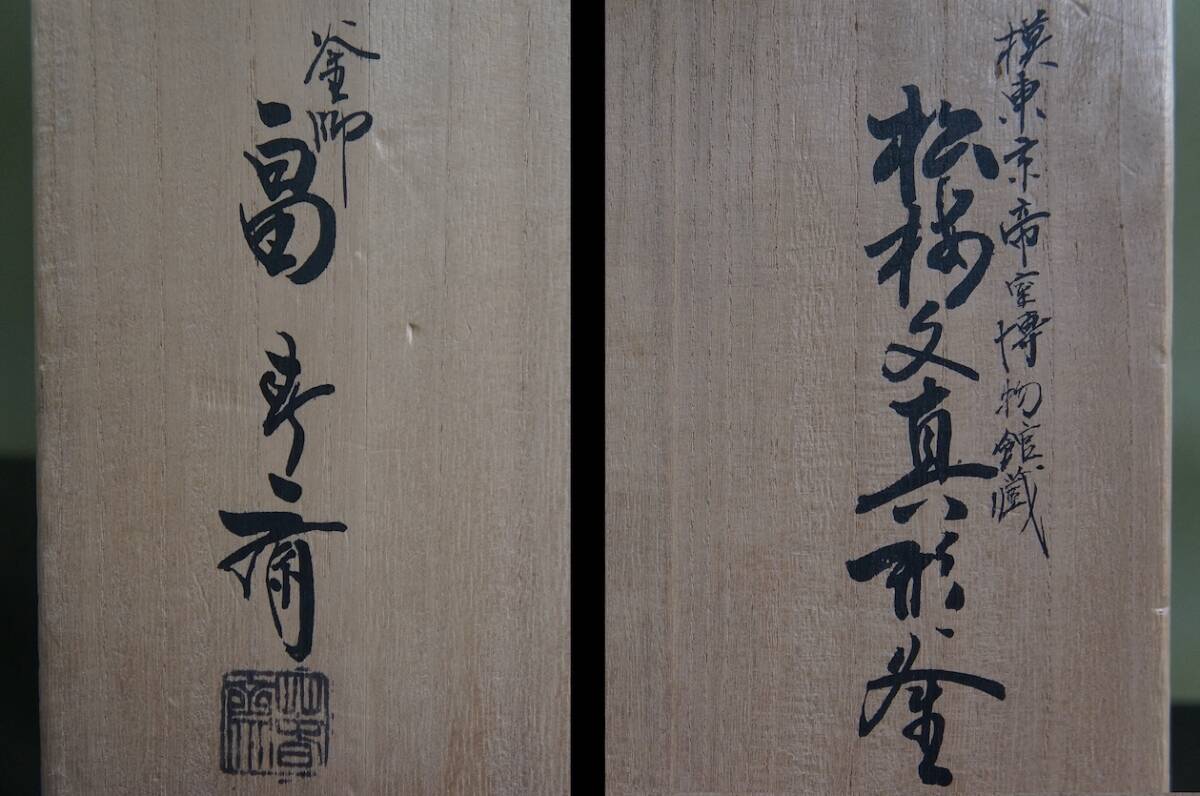 模東京帝室博物館蔵
松梅文真形釜
釜師
畠春斎